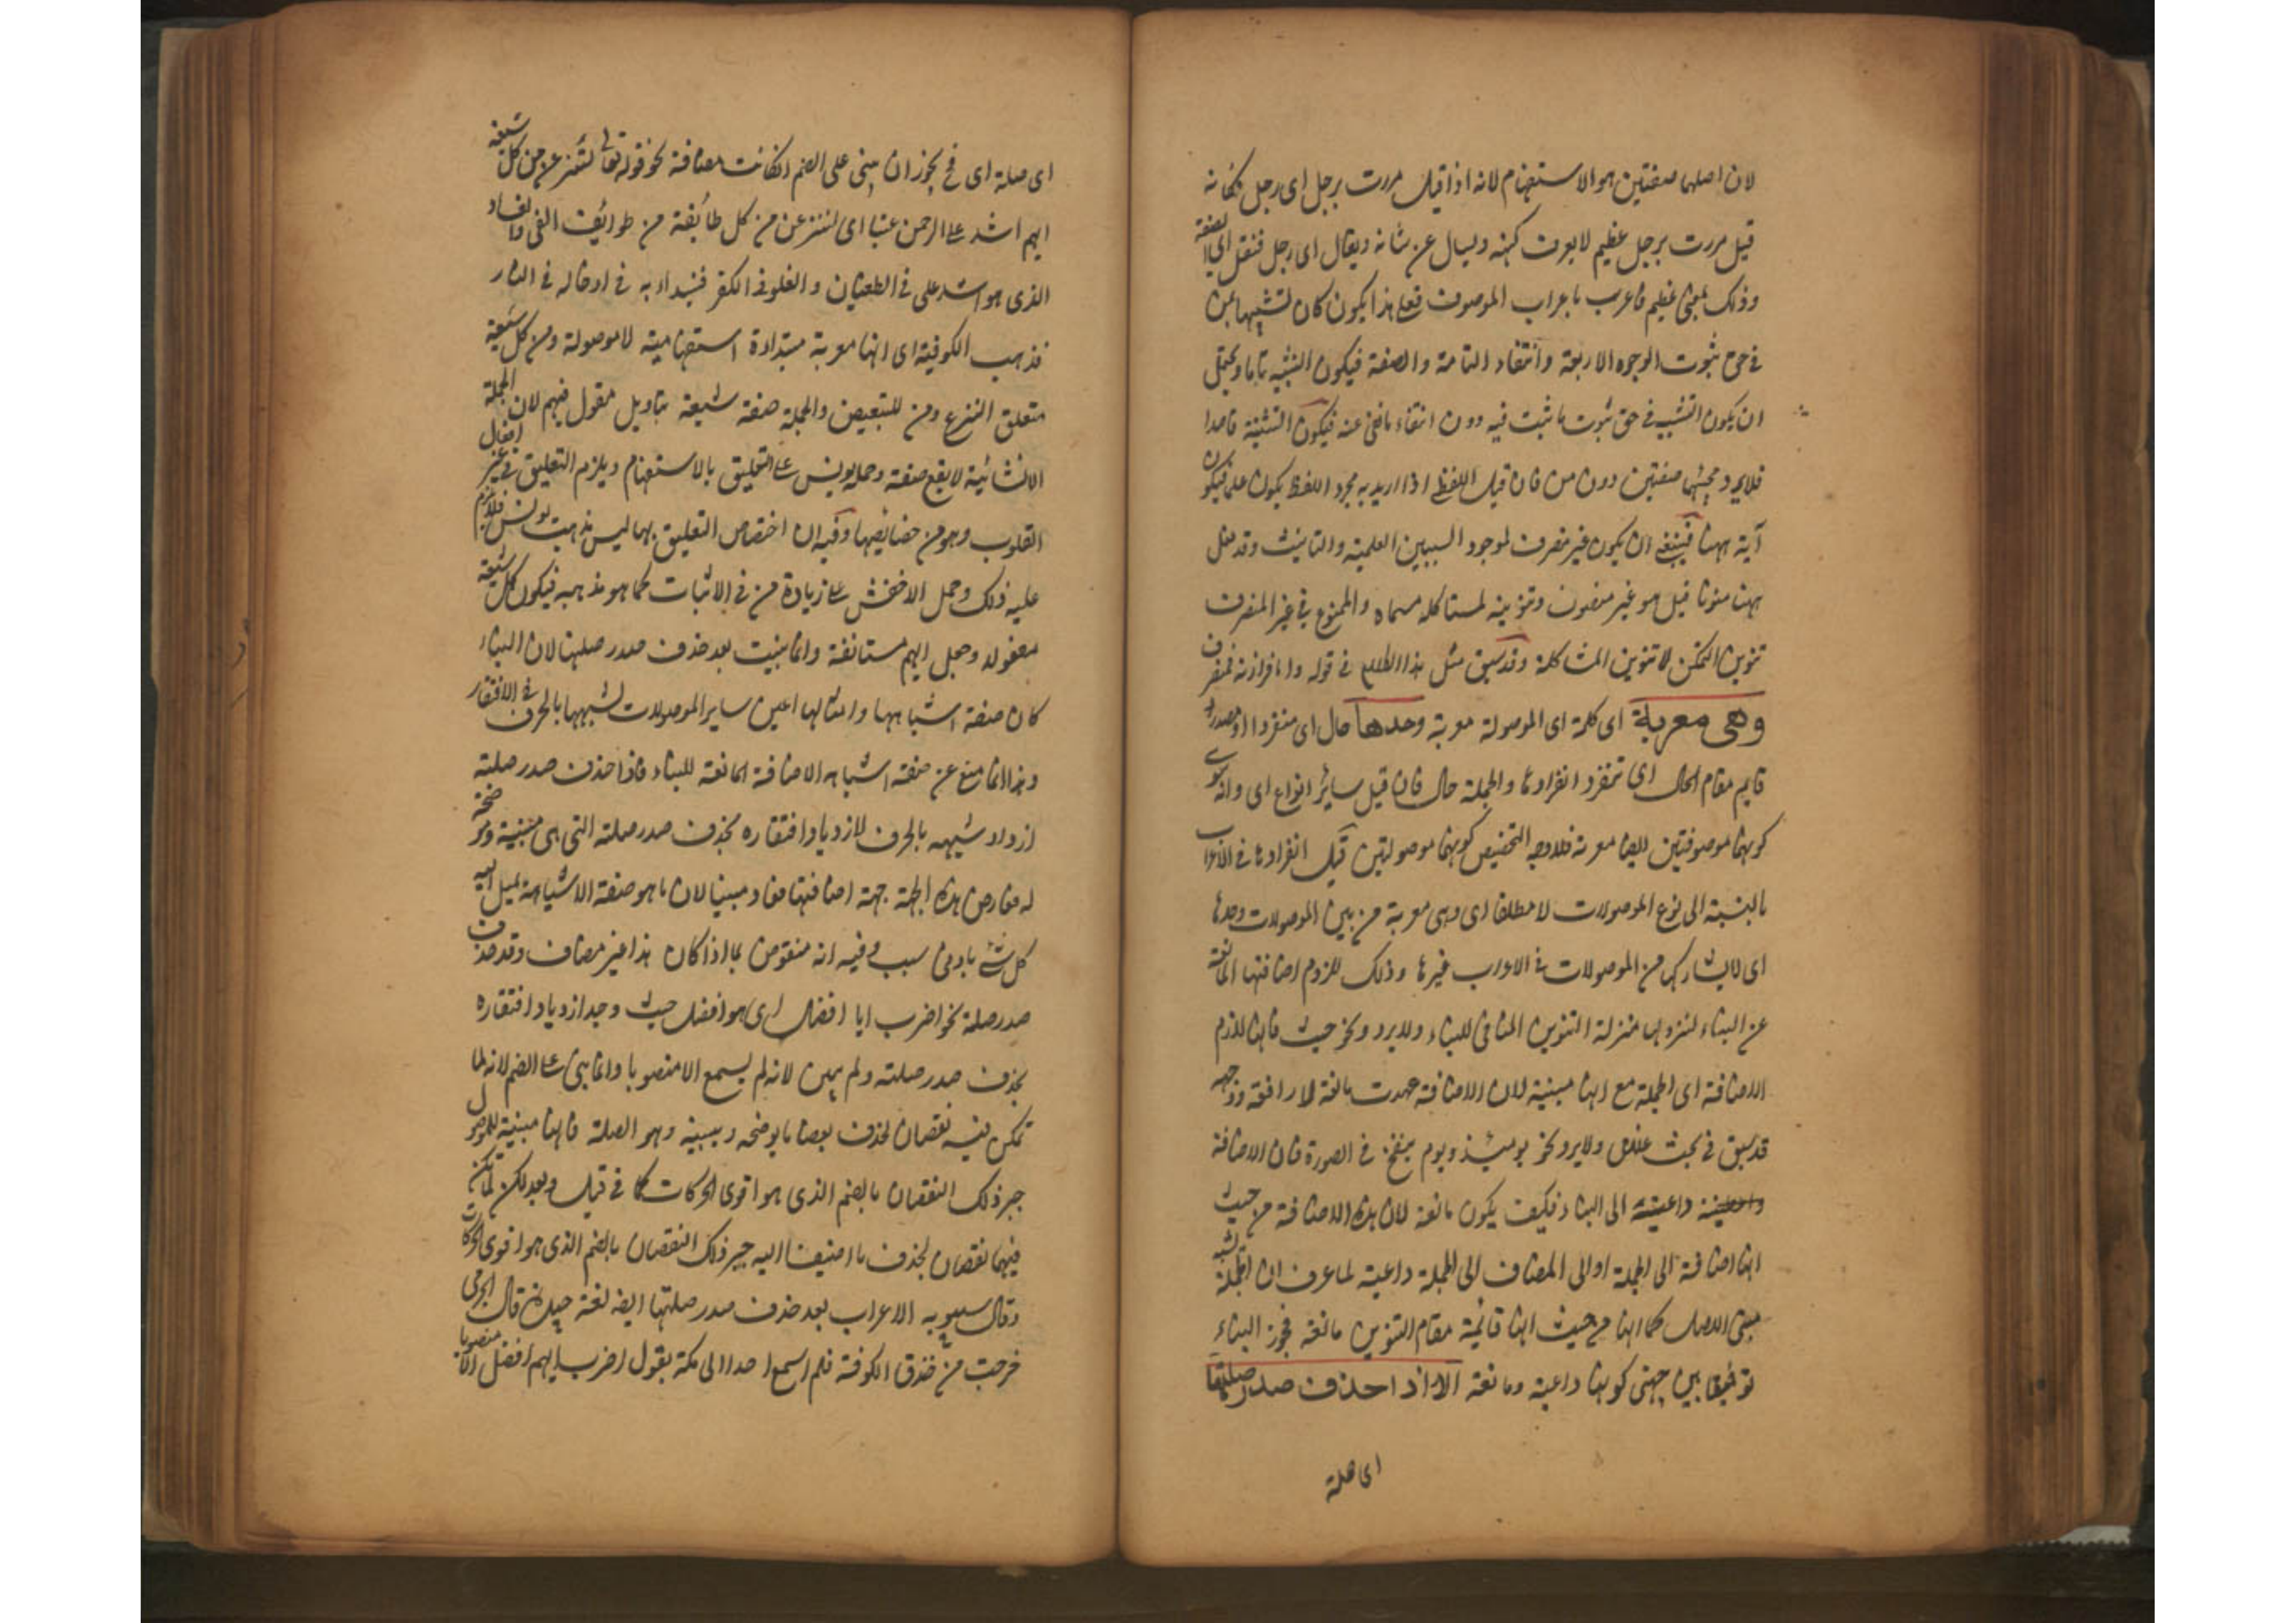 لان اصلهما صفتين هو الاستفهام لانه اذا قيل مررت برجل اى رجل فكانه
قيل مررت برجل عظيم لا يعرف كنهه ويسال عن شانه ويقال اى رجل فنقل الى الصفة
وذلك بمعنى عظيم فاعرب باعراب الموصوف فعلى هذا يكون كان تشبيهها بمن
فى حق ثبوت الوجوه الاربعة وانتفاء التامة والصفة فيكون التشبيه تاما ويحتمل
ان يكون التشبيه فى حق ثبوت ما ثبت فيه دون انتفاء ما نفى عنه فيكون التشبيه قاصرا
فلا يرد مجيئهما صفتين دون من فان قيل اللفظ اذا اريد به مجرد اللفظ يكون علما فيكون
آية ههنا فينبغى ان يكون غير منصرف لوجود السببين العلمية والتانيث وقد
ههنا منونا قيل هو غير منصرف وتنوينه لمشاكلة مسماه والممنوع فى غير المنصرف
تنوين التمكن لا تنوين المشاكلة وقد سبق مثل هذا فى قوله واما فرازنة فمنصرف
وهى معربة اى كلمة اى الموصولة معربة وحدها حال اى منفردا او مصدر
قايم مقام الحال اى تنفرد انفرادها والجملة حال فان قيل ساير انواع اى واية سوى
كونهما موصوفتين ايضا معربة فلا وجه لتخصيص كونهما موصولتين قيل انفرادها فى الاعراب
بالنسبة الى نوع الموصولات لا مطلقا اى وهى معربة من بين الموصولات وحدها
اى لا يشاركها من الموصولات فى الاعراب غيرها وذلك للزوم اضافتها المانعة
عن البناء لنزولها منزلة التنوين المنافى للبناء ولا يرد نحو حيث فانها لازم
الاضافة اى الجملة مع انها مبنية لان الاضافة عهدت مانعة لا رافعة ووجهه
قد سبق فى بحث ولا يرد نحو يومئذ ويوم ينفخ فى الصور فان الاضافة
داعية الى البناء فكيف يكون مانعة لان هذه الاضافة من حيث
انها اضافة الى الجملة او الى المضاف الى الجملة داعية لما عرف ان الجملة تشبه
مبنى الاصل كما انها من حيث انها قائمة مقام التنوين مانعة فجوز البناء
توفيقا بين جهتى كونها داعية ومانعة الا اذا حذف صدر صلتها
اى صلة
اى صلة اى فح يجوز ان يبنى على الضم اذا كانت مضافة نحو قوله تعالى لننزعن من كل شيعة
ايهم اشد على الرحمن عتيا اى لننزعن من كل طائفة من طوائف الغى والفساد
الذى هو اشد على فى الطغيان والغلو فى الكفر فنبدا به فى ادخاله فى النار
فذهب الكوفية اى انها معربة مبتداة استفهامية لا موصولة ومن كل شيعة
متعلق النزع ومن للتبعيض والجملة صفة شيعة بتاويل مقول فيهم لان الجملة
الانشائية لا يقع صفة وحمله يونس على التعليق بالاستفهام ويلزم التعليق فى غير افعال
القلوب وهو من خصائصها وفيه ان اختصاص التعليق بها ليس مذهب يونس فلا يلزم
عليه ذلك وحمل الاخفش على زيادة من فى الاثبات كما هو مذهبه فيكون كل شيعة
مفعوله وجعل ايهم مستانفة وانما بنيت بعد حذف صدر صلتها لان البناء
كان صفة اشباهها وامثالها اعنى ساير الموصولات لشبهها بالحرف فى الافتقار
وهذا انما منع عن صفة اشباهه الاضافة المانعة للبناء فاذا حذف صدر صلته
ازداد شبهه بالحرف لازدياد افتقاره بحذف صدر صلته التى هى مبنية وموضحة
له فعارض هذه الجهة جهة اضافتها فعاد مبنيا لان ما هو صفة الاشباه يميل اليه
كل شئ بادنى سبب وفيه انه منقوض بما اذا كان هذا غير مضاف وقد حذف
صدر صلة نحو اضرب ايا افضل اى هو افضل حيث وجد ازدياد افتقاره
بحذف صدر صلته ولم يبن لانه لم يسمع الا منصوبا وانما بنى على الضم لانه لما
تمكن فيه نقصان بحذف بعض ما يوضحه ويبينه وهو الصلة فانها مبنية للموصول
جبر ذلك النقصان بالضم الذى هو اقوى الحركات كما فى قبل وبعد لكن تمكن
فيهما نقصان بحذف ما اضيفا اليه جبر ذلك النقصان بالضم الذى هو اقوى الحركات
وقال سيبويه الاعراب بعد حذف صدر صلتها ايضا لغة جيدة قال الجرمى
خرجت من خندق الكوفة فلم اسمع احدا الى مكة يقول اضرب ايهم افضل الا منصوبا